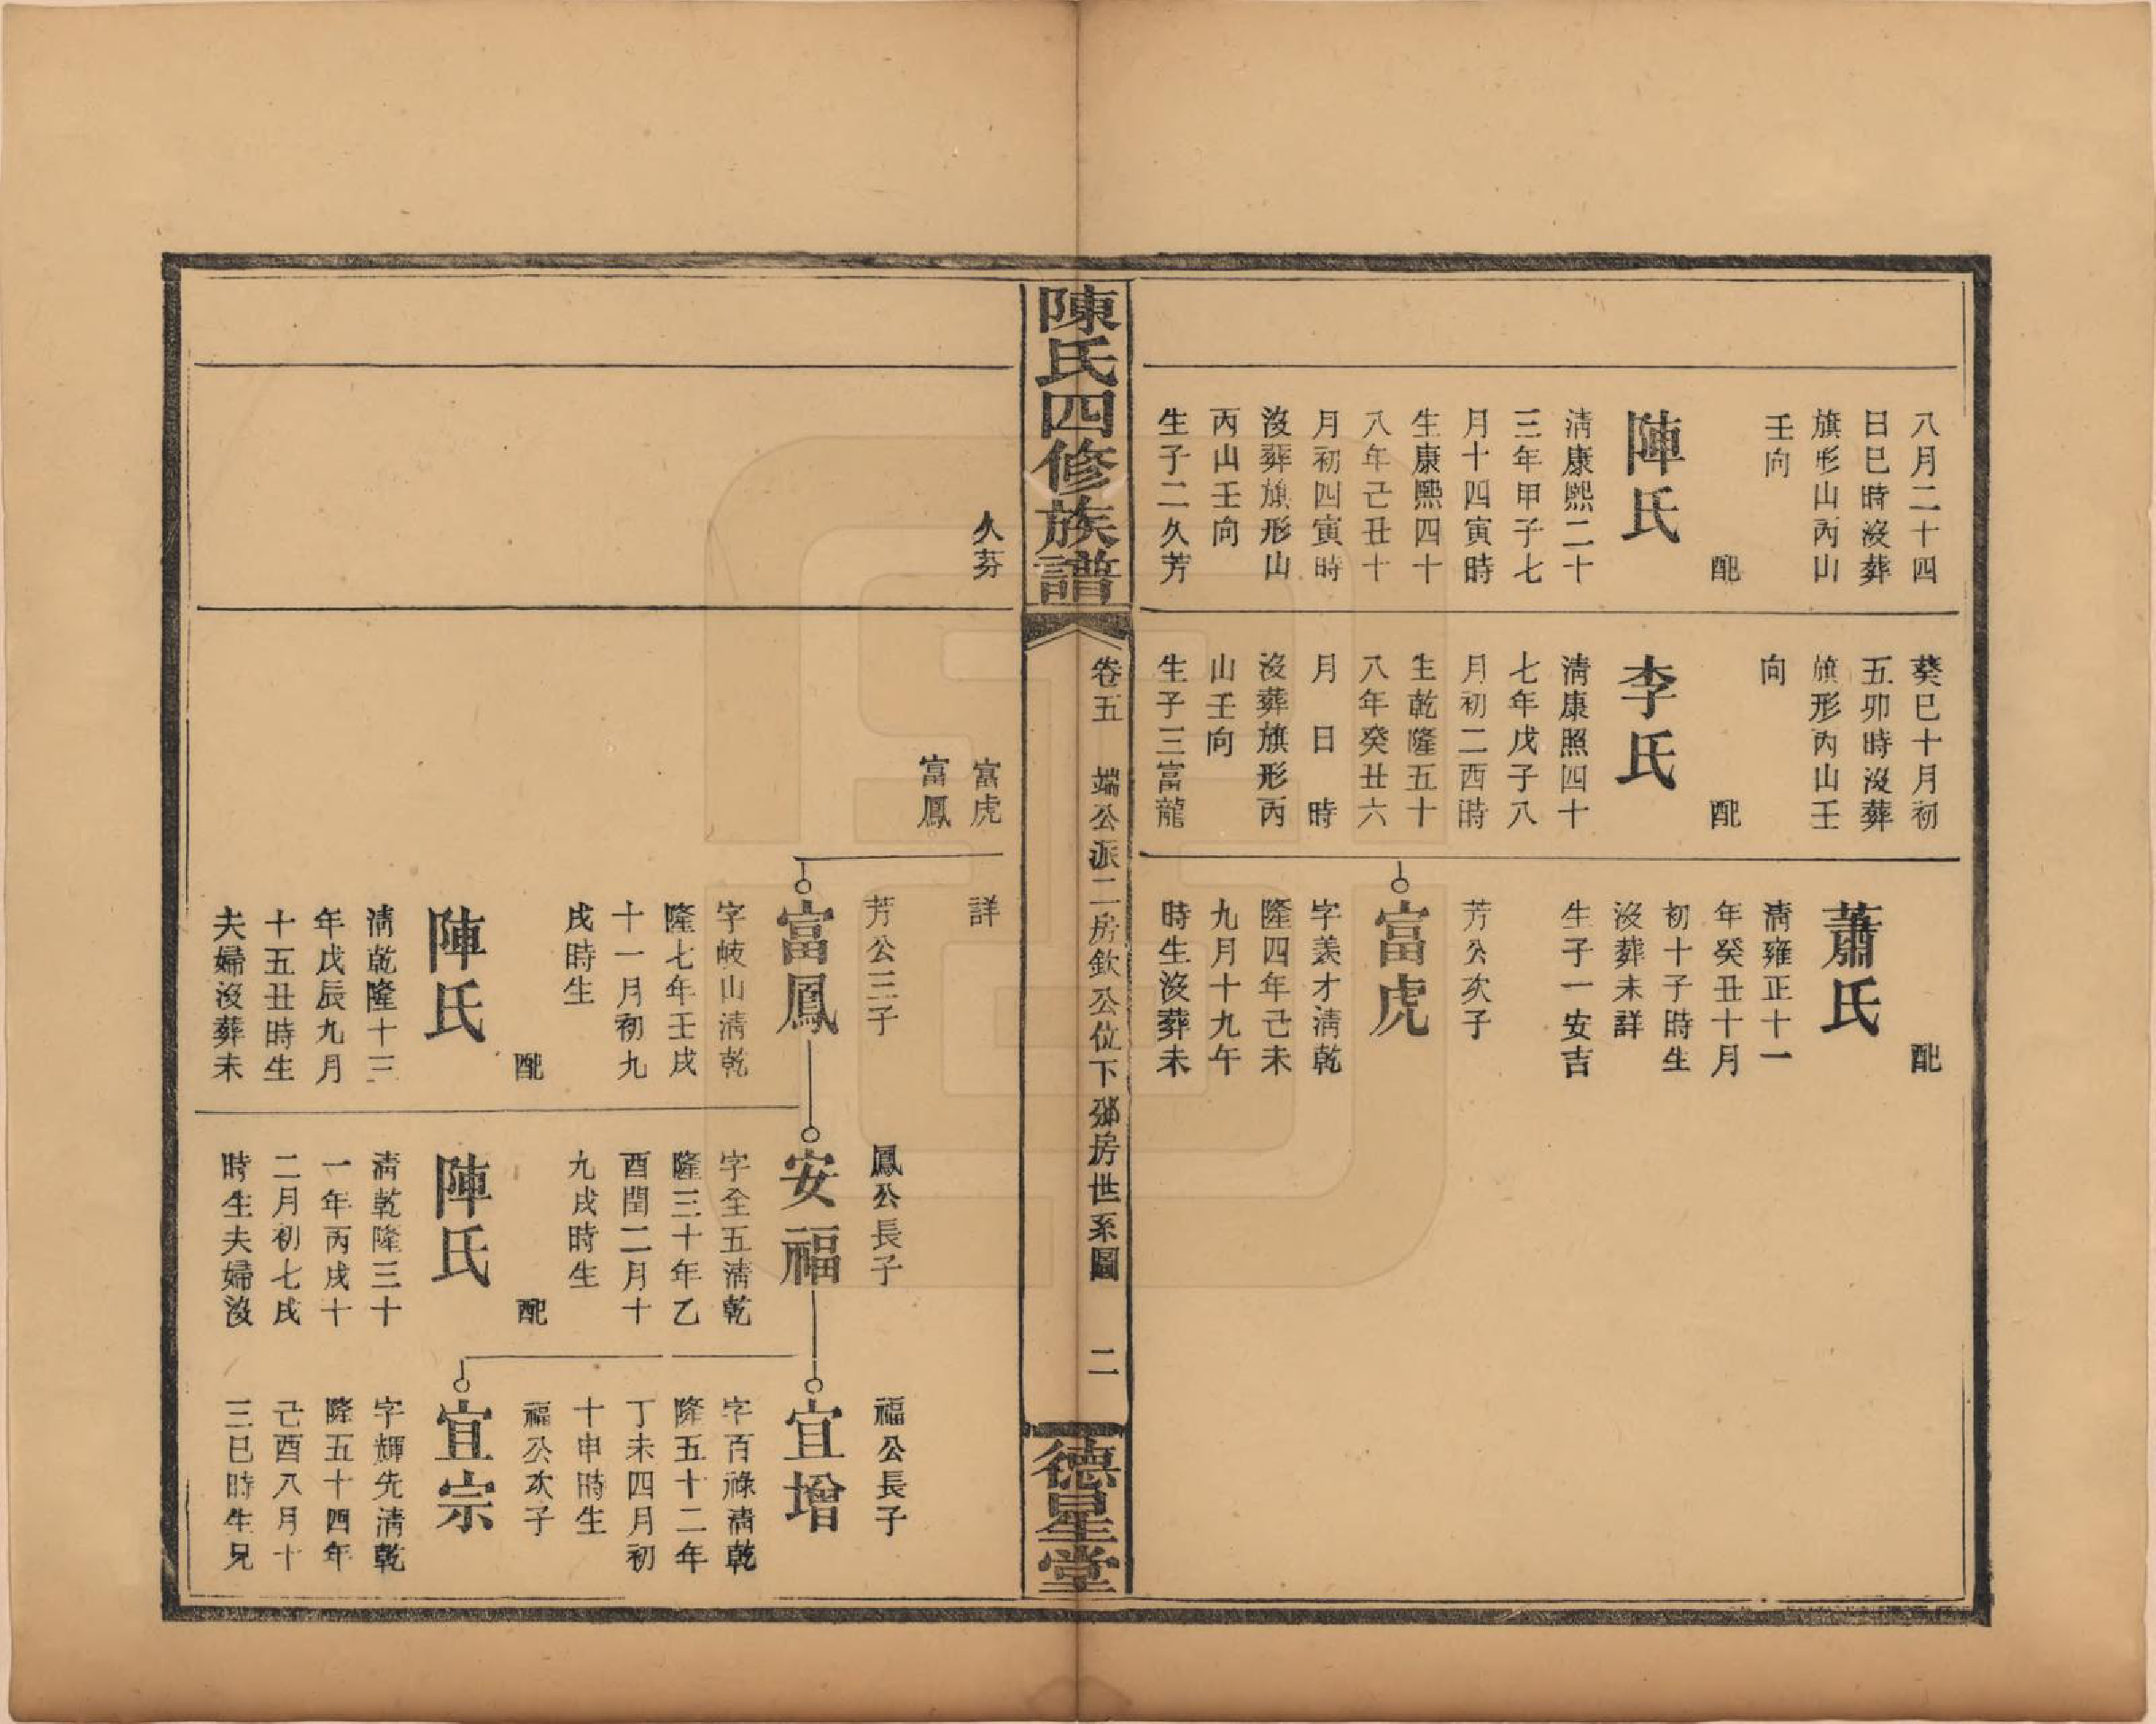 八月二十四
日巳時沒葬
旗形山丙山
壬向
配
陳氏
淸康熙二十
三年甲子七
月十四寅時
生康熙四十
八年己丑十
月初四寅時
沒葬旗形山
丙山壬向
生子二久芳
葵巳十月初
五卯時沒葬
旗形丙山壬
向
配
李氏
淸康照四十
七年戊子八
月初二酉時
生乾隆五十
八年癸丑六
月 日 時
沒葬旗形丙
山壬向
生子三富龍
配
蕭氏
淸雍正十一
年癸丑十月
初十子時生
沒葬未詳
生子一安吉
芳公次子
富虎
字羨才淸乾
隆四年己未
九月十九午
時生沒葬未
陳氏四修族譜
卷五 端公派二房欽公位下鄒房世系圖 二
德星堂
久芬
富虎
富鳳
詳
芳公三子
富鳳
字岐山淸乾
隆七年壬戌
十一月初九
戌時生
配
陳氏
淸乾隆十三
年戊辰九月
十五丑時生
夫婦沒葬未
鳳公長子
安福
字全五淸乾
隆三十年乙
酉閏二月十
九戌時生
配
陳氏
淸乾隆三十
一年丙戌十
二月初七戌
時生夫婦沒
福公長子
宜增
字百祿淸乾
隆五十二年
丁未四月初
十申時生
福公次子
宜宗
字輝先淸乾
隆五十四年
己酉八月十
三巳時生兄